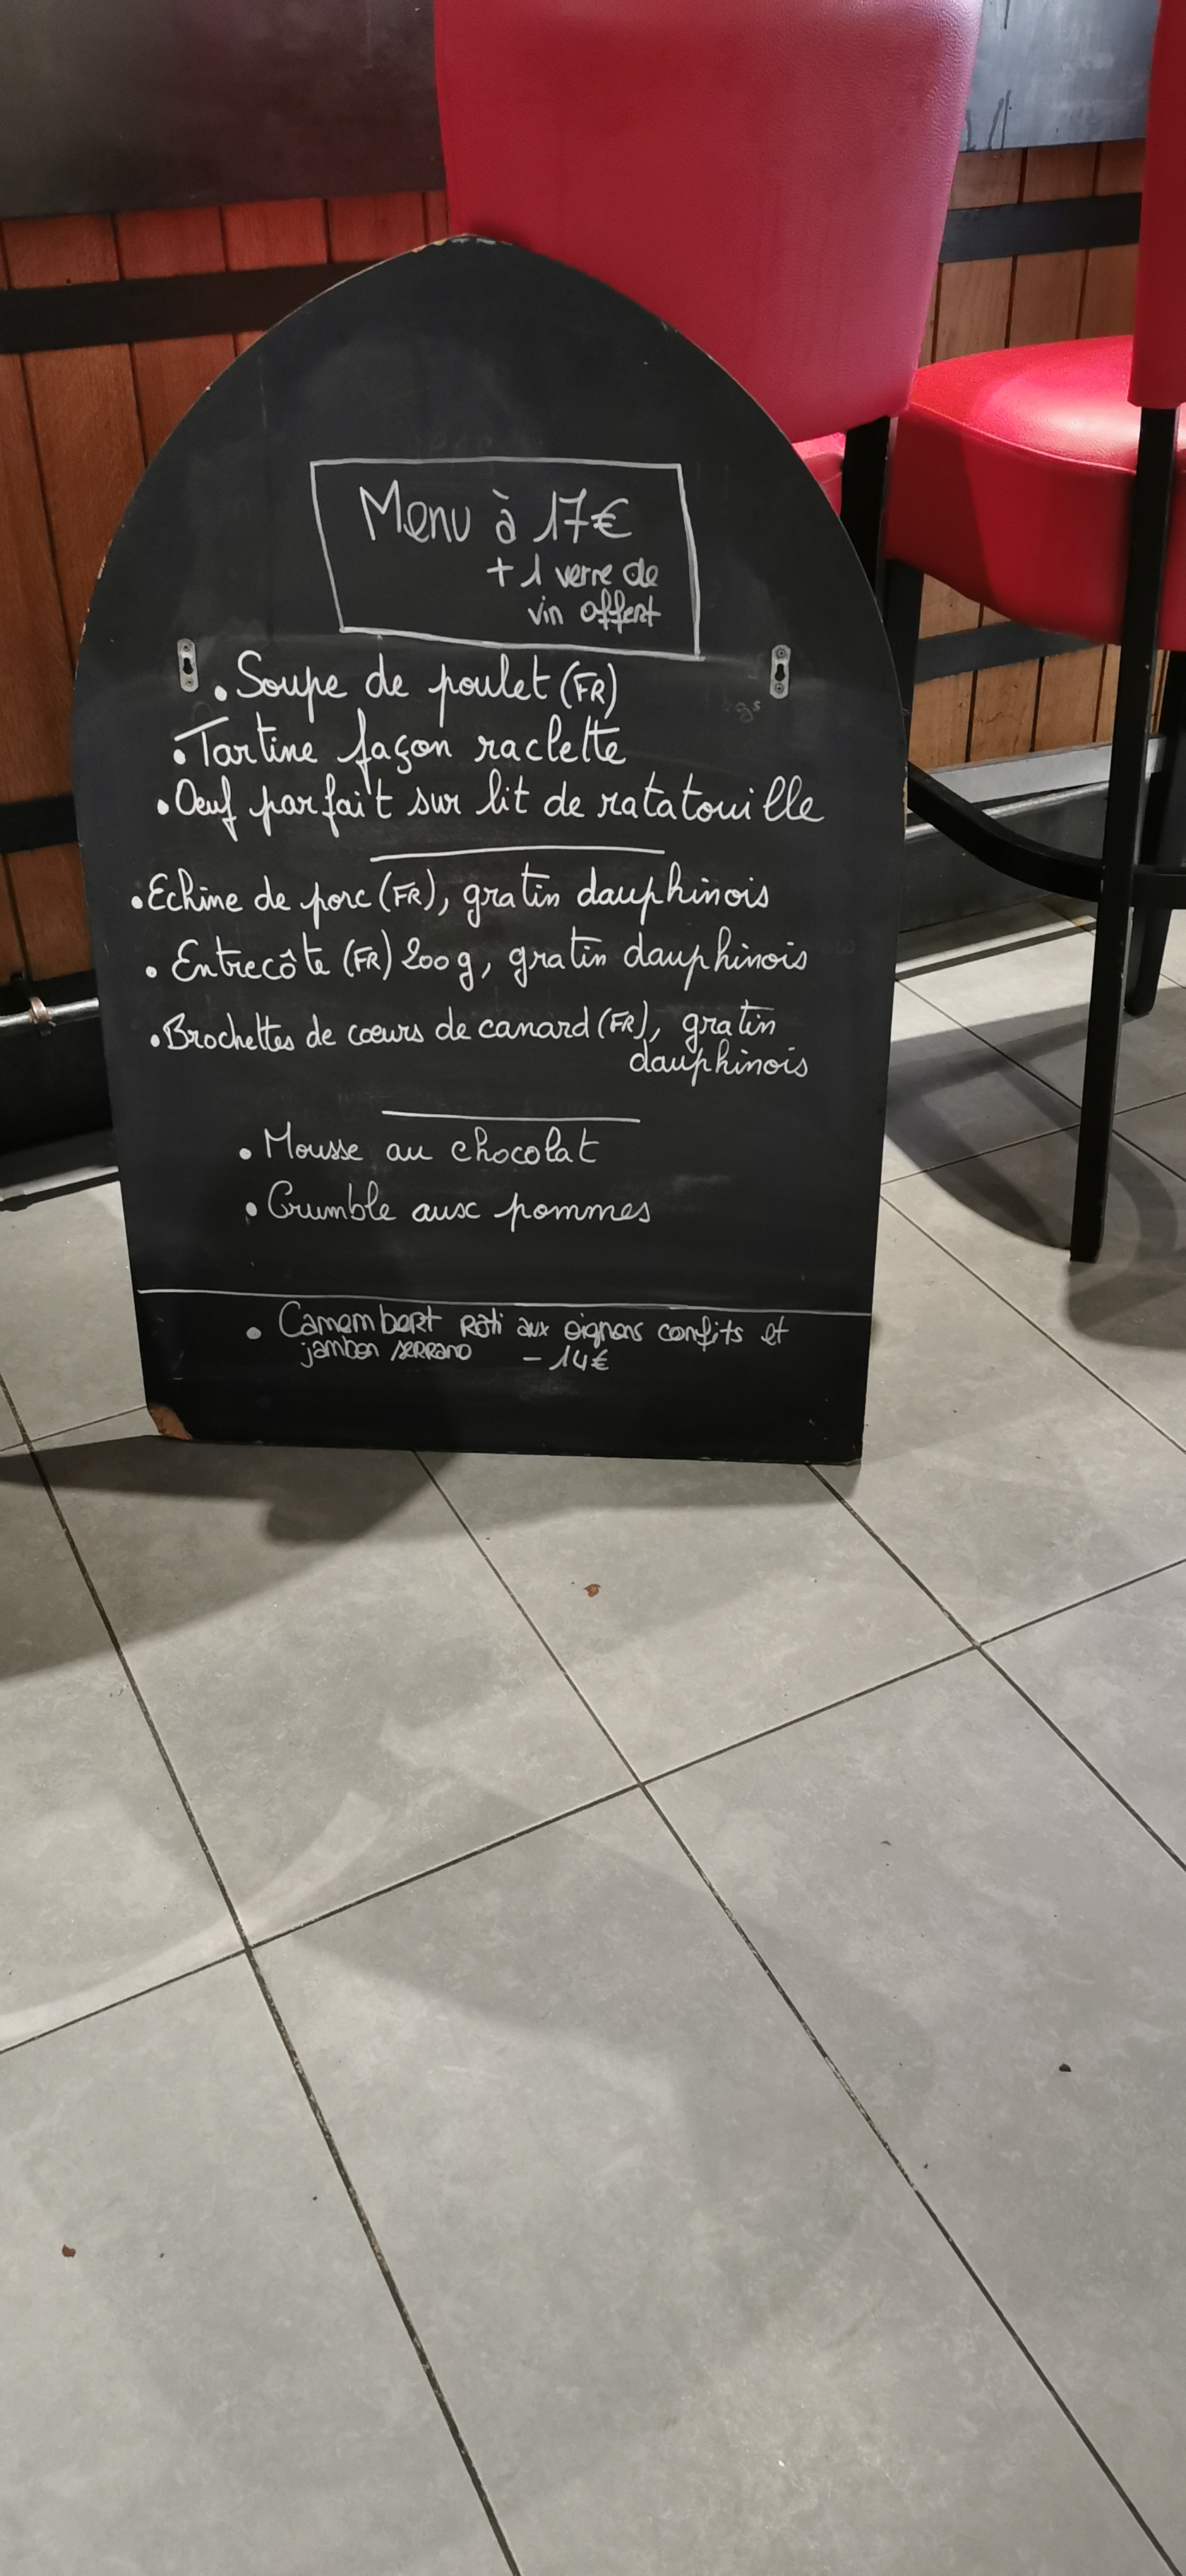 Menu à 17€
+ 1 verre de
vin offert
• Soupe de poulet (FR)
• Tartine façon raclette
• Oeuf parfait sur lit de ratatouille
• Echine de porc (FR), gratin dauphinois
• Entrecôte (FR) 200g, gratin dauphinois
• Brochettes de cœurs de canard (FR), gratin
dauphinois
• Mousse au chocolat
• Crumble aux pommes
• Camembert Rôti aux oignons confits et
jambon serrano - 14€